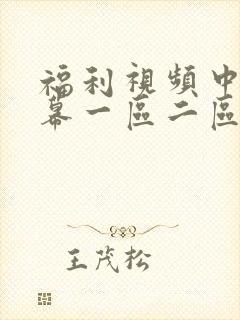 福利視頻中
幕一區二區
王茂松